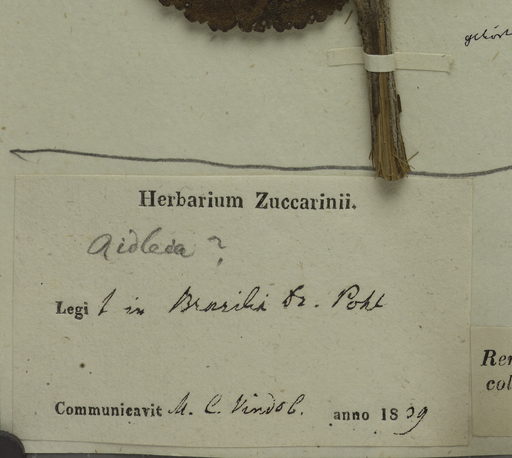 gehört
Herbarium Zuccarinii.
?
Legi t in Brasilia Dr. Pohl
Rer
col
Communicavit M. C. Vindob. anno 1839